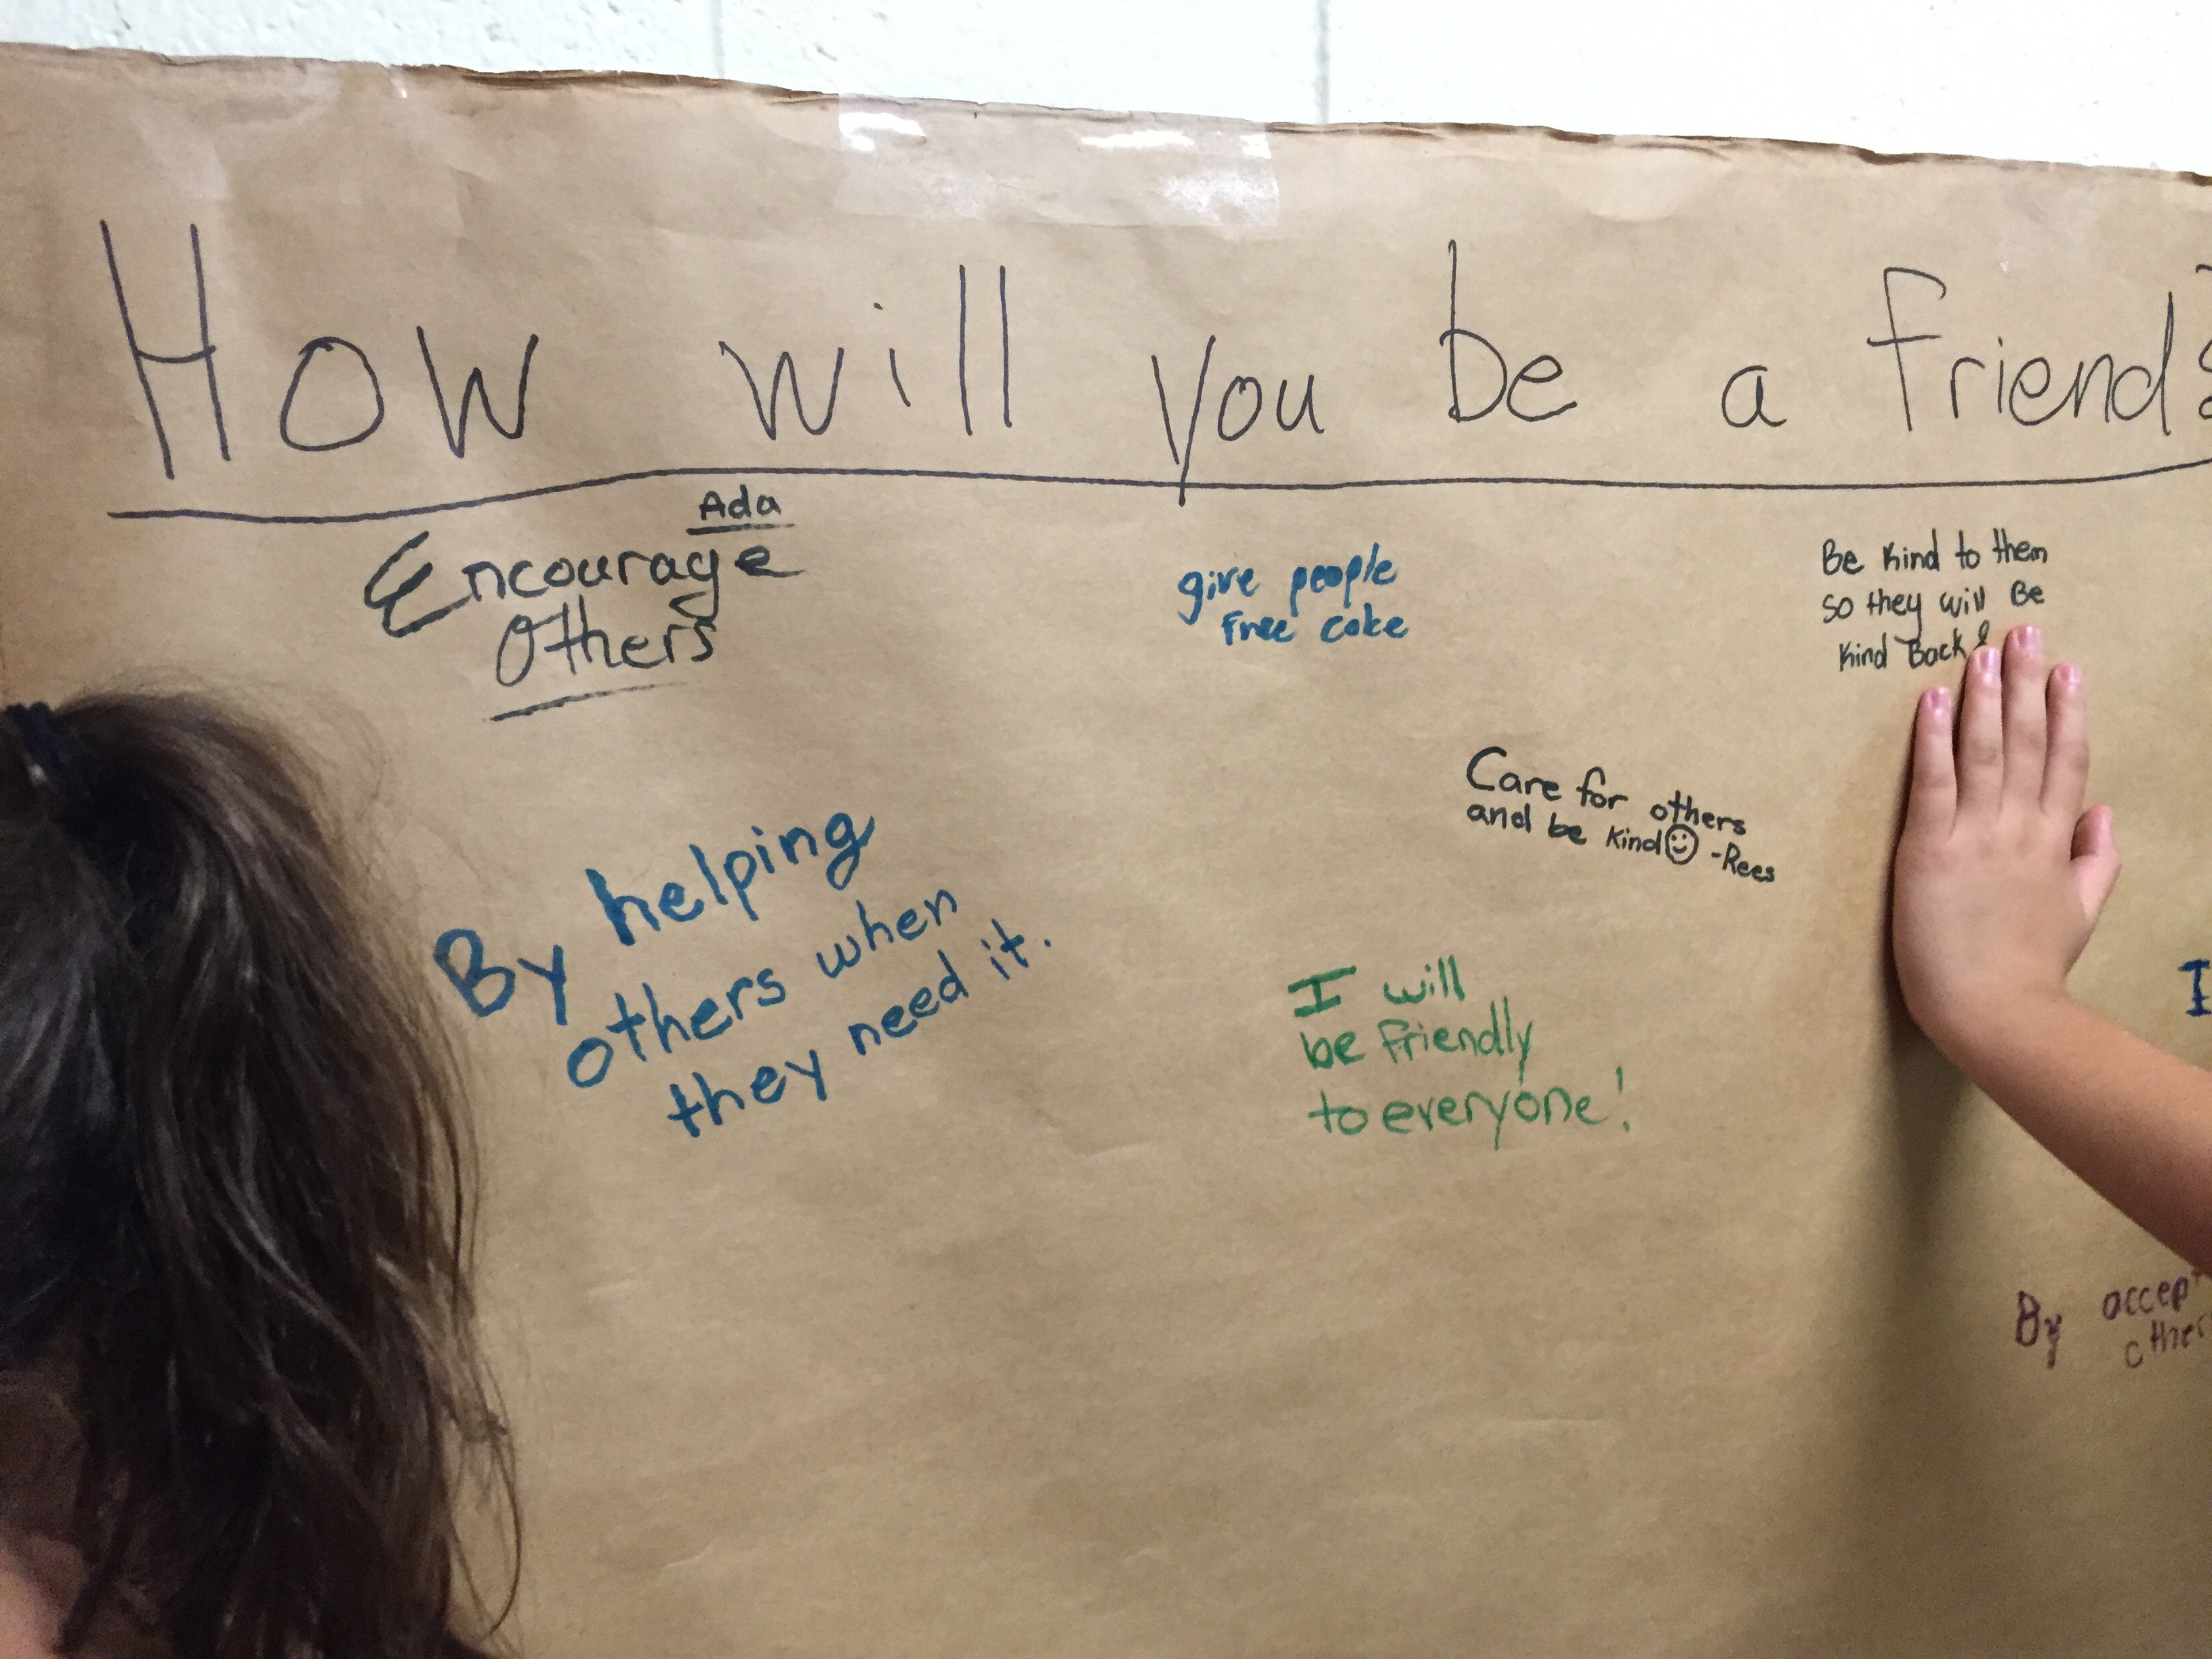 How will you be a friend?
Ada
Encourage
Others
give people
free coke
Be kind to them
so they will Be
kind Back
Care for others
and be kind☺ -Rees
By helping
others when
they need it.
I will
be friendly
to everyone!
I
By